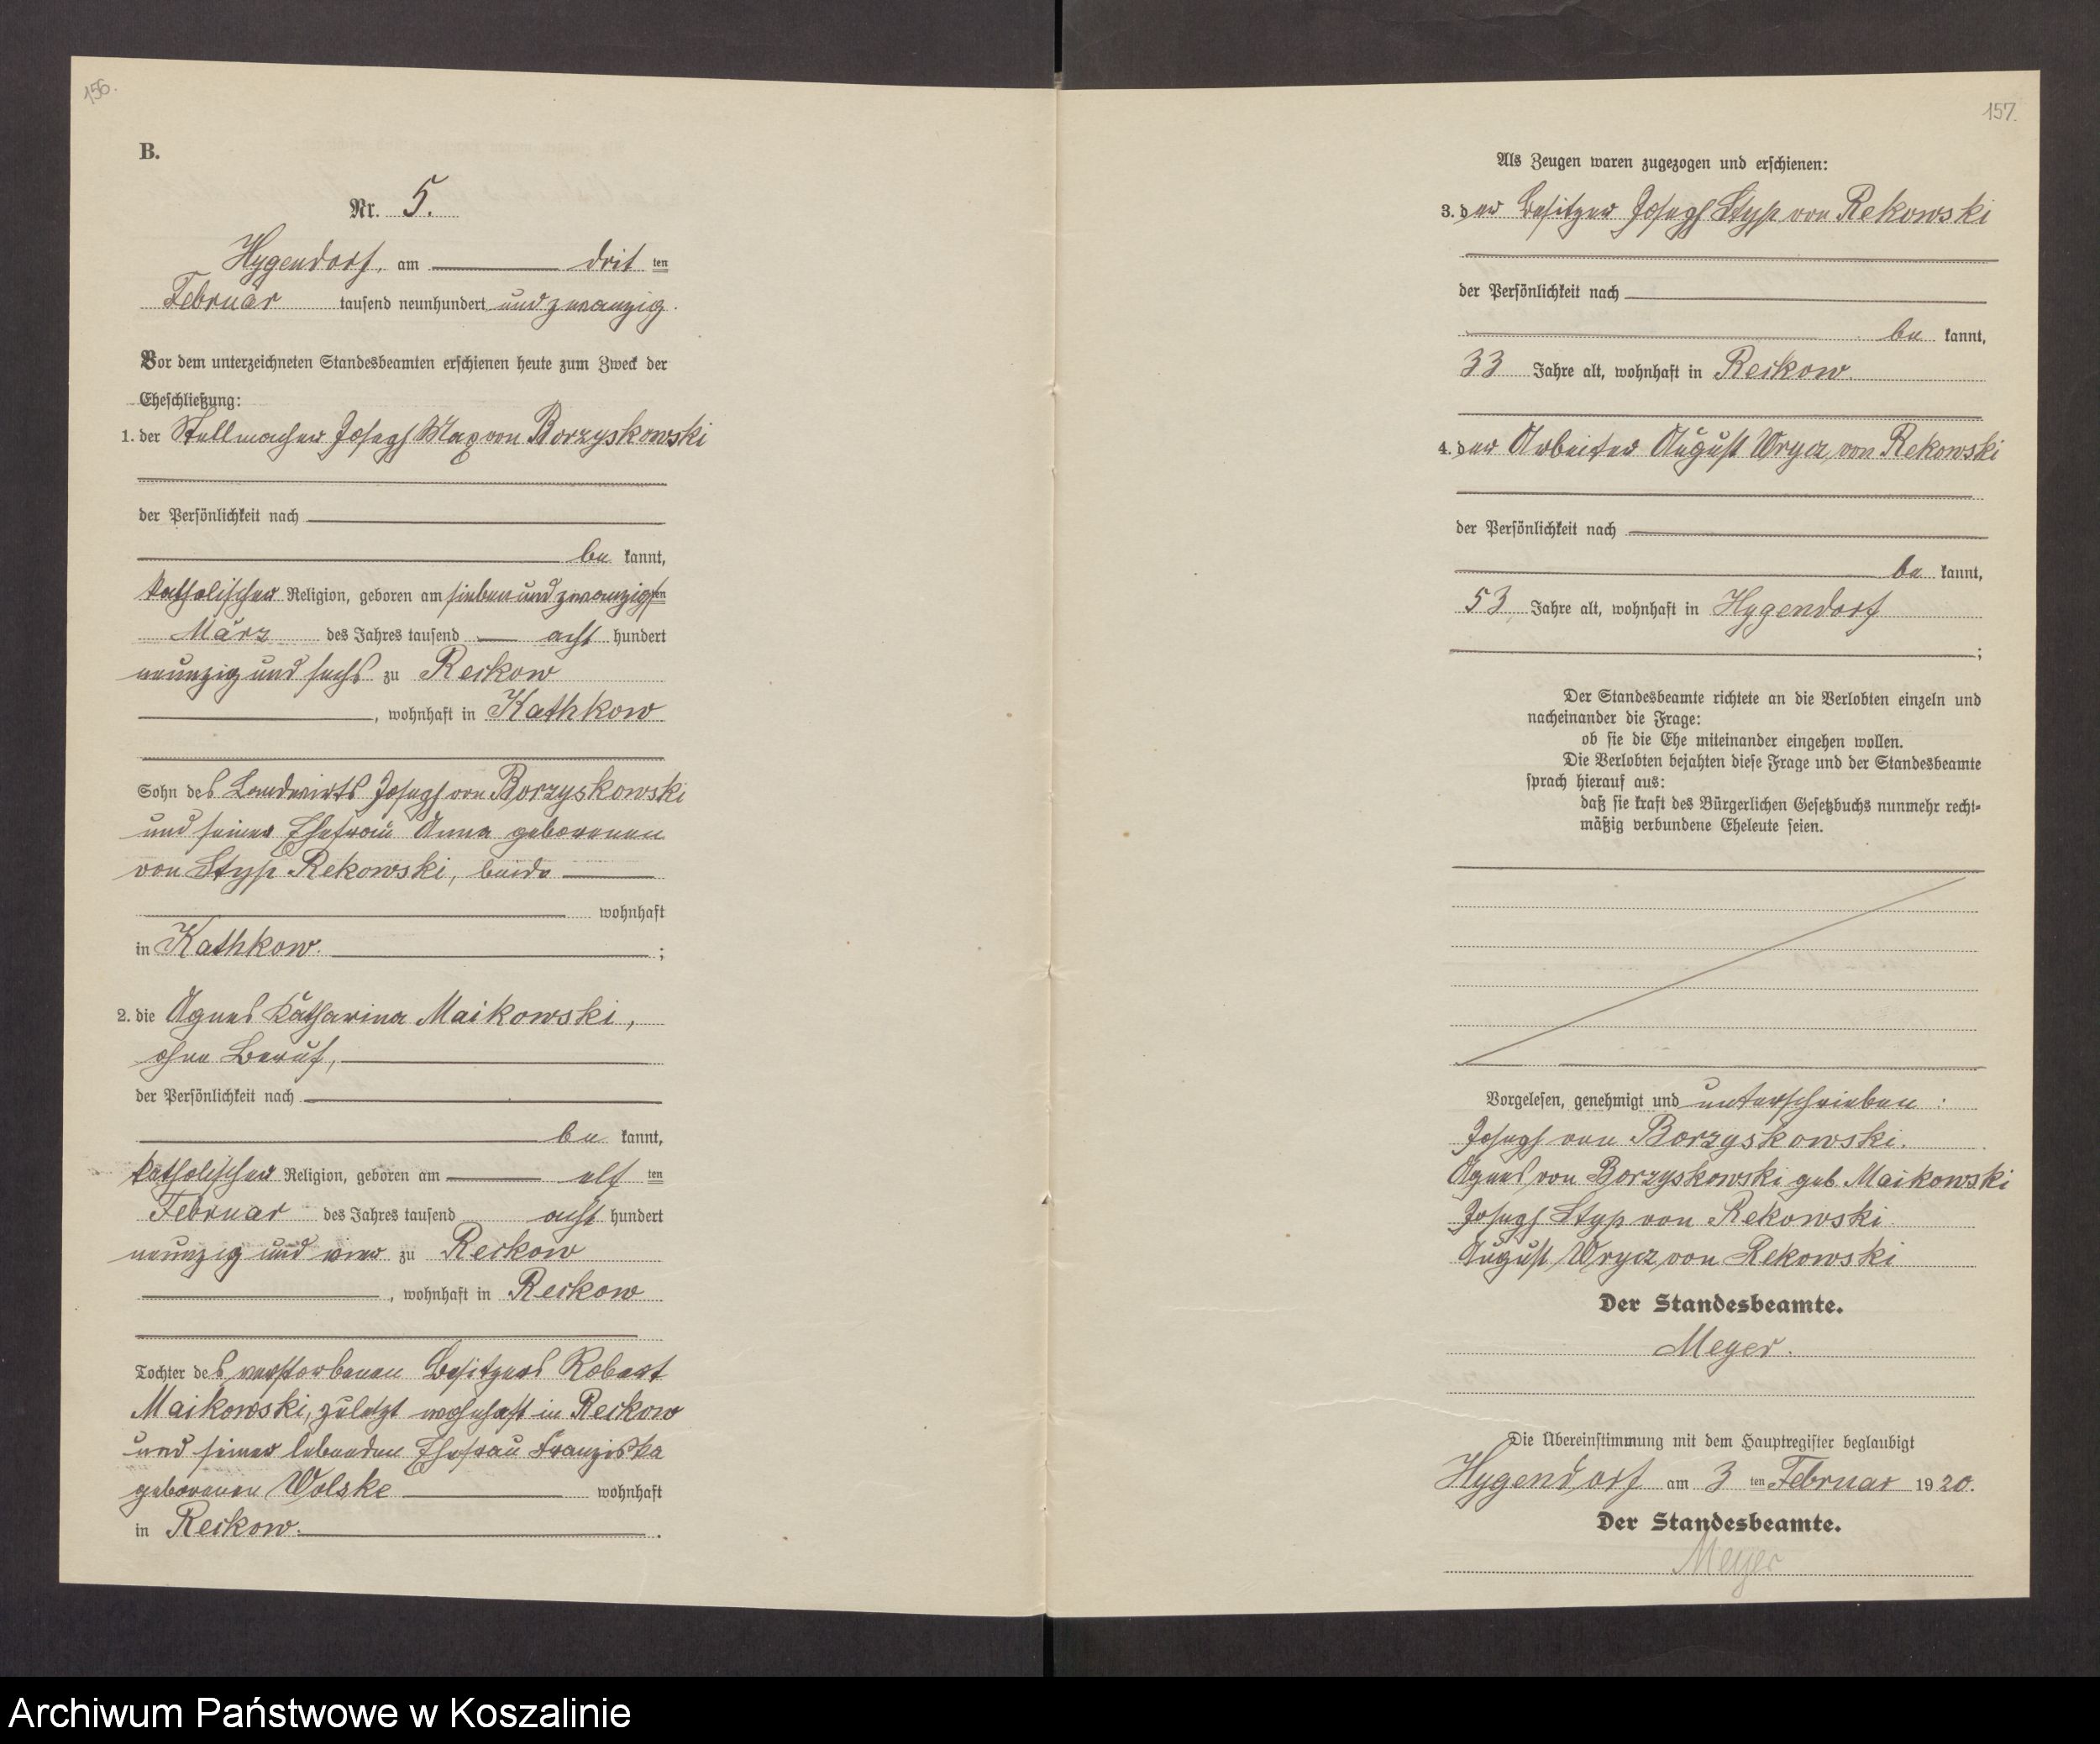 156.
B.
Nr. 5.
Hygendorf, am dritten
Februar tausend neunhundert und zwanzig.
Vor dem unterzeichneten Standesbeamten erschienen heute zum Zweck der
Eheschließung:
1. der Stellmacher Joseph Max von Borzyskowski
der Persönlichkeit nach
be kannt,
katholischer Religion, geboren am siebenundzwanzigsten
März des Jahres tausend acht hundert
neunzig und sechs zu Reckow
, wohnhaft in Kathkow
Sohn des Landwirts Joseph von Borzyskowski
und seiner Ehefrau Anna geborenen
von Styp Rekowski, beide
wohnhaft
in Kathkow. ;
2. die Agnes Katharina Maikowski,
ohne Beruf,
der Persönlichkeit nach
be kannt,
katholischer Religion, geboren am elf ten
Februar des Jahres tausend acht hundert
neunzig und vier zu Reckow
, wohnhaft in Reckow
Tochter des verstorbenen Besitzers Robert
Maikowski, zuletzt wohnhaft in Reckow
und seiner lebenden Ehefrau Franziska
geborenen Wolske wohnhaft
in Reckow. .
157.
Als Zeugen waren zugezogen und erschienen:
3. der Besitzer Joseph Styp von Rekowski
der Persönlichkeit nach
be kannt,
33 Jahre alt, wohnhaft in Reckow.
4. der Arbeiter August Wrycz von Rekowski
der Persönlichkeit nach
be kannt,
53 Jahre alt, wohnhaft in Hygendorf
;
Der Standesbeamte richtete an die Verlobten einzeln und
nacheinander die Frage:
ob sie die Ehe miteinander eingehen wollen.
Die Verlobten bejahten diese Frage und der Standesbeamte
sprach hierauf aus:
daß sie kraft des Bürgerlichen Gesetzbuchs nunmehr recht-
mäßig verbundene Eheleute seien.
Vorgelesen, genehmigt und unterschrieben :
Joseph von Borzyskowski.
Agnes von Borzyskowski geb. Maikowski
Joseph Styp von Rekowski
August Wrycz von Rekowski
Der Standesbeamte.
Meyer.
Die Übereinstimmung mit dem Hauptregister beglaubigt
Hygendorf am 3 ten Februar 1920.
Der Standesbeamte.
Meyer
Archiwum Państwowe w Koszalinie